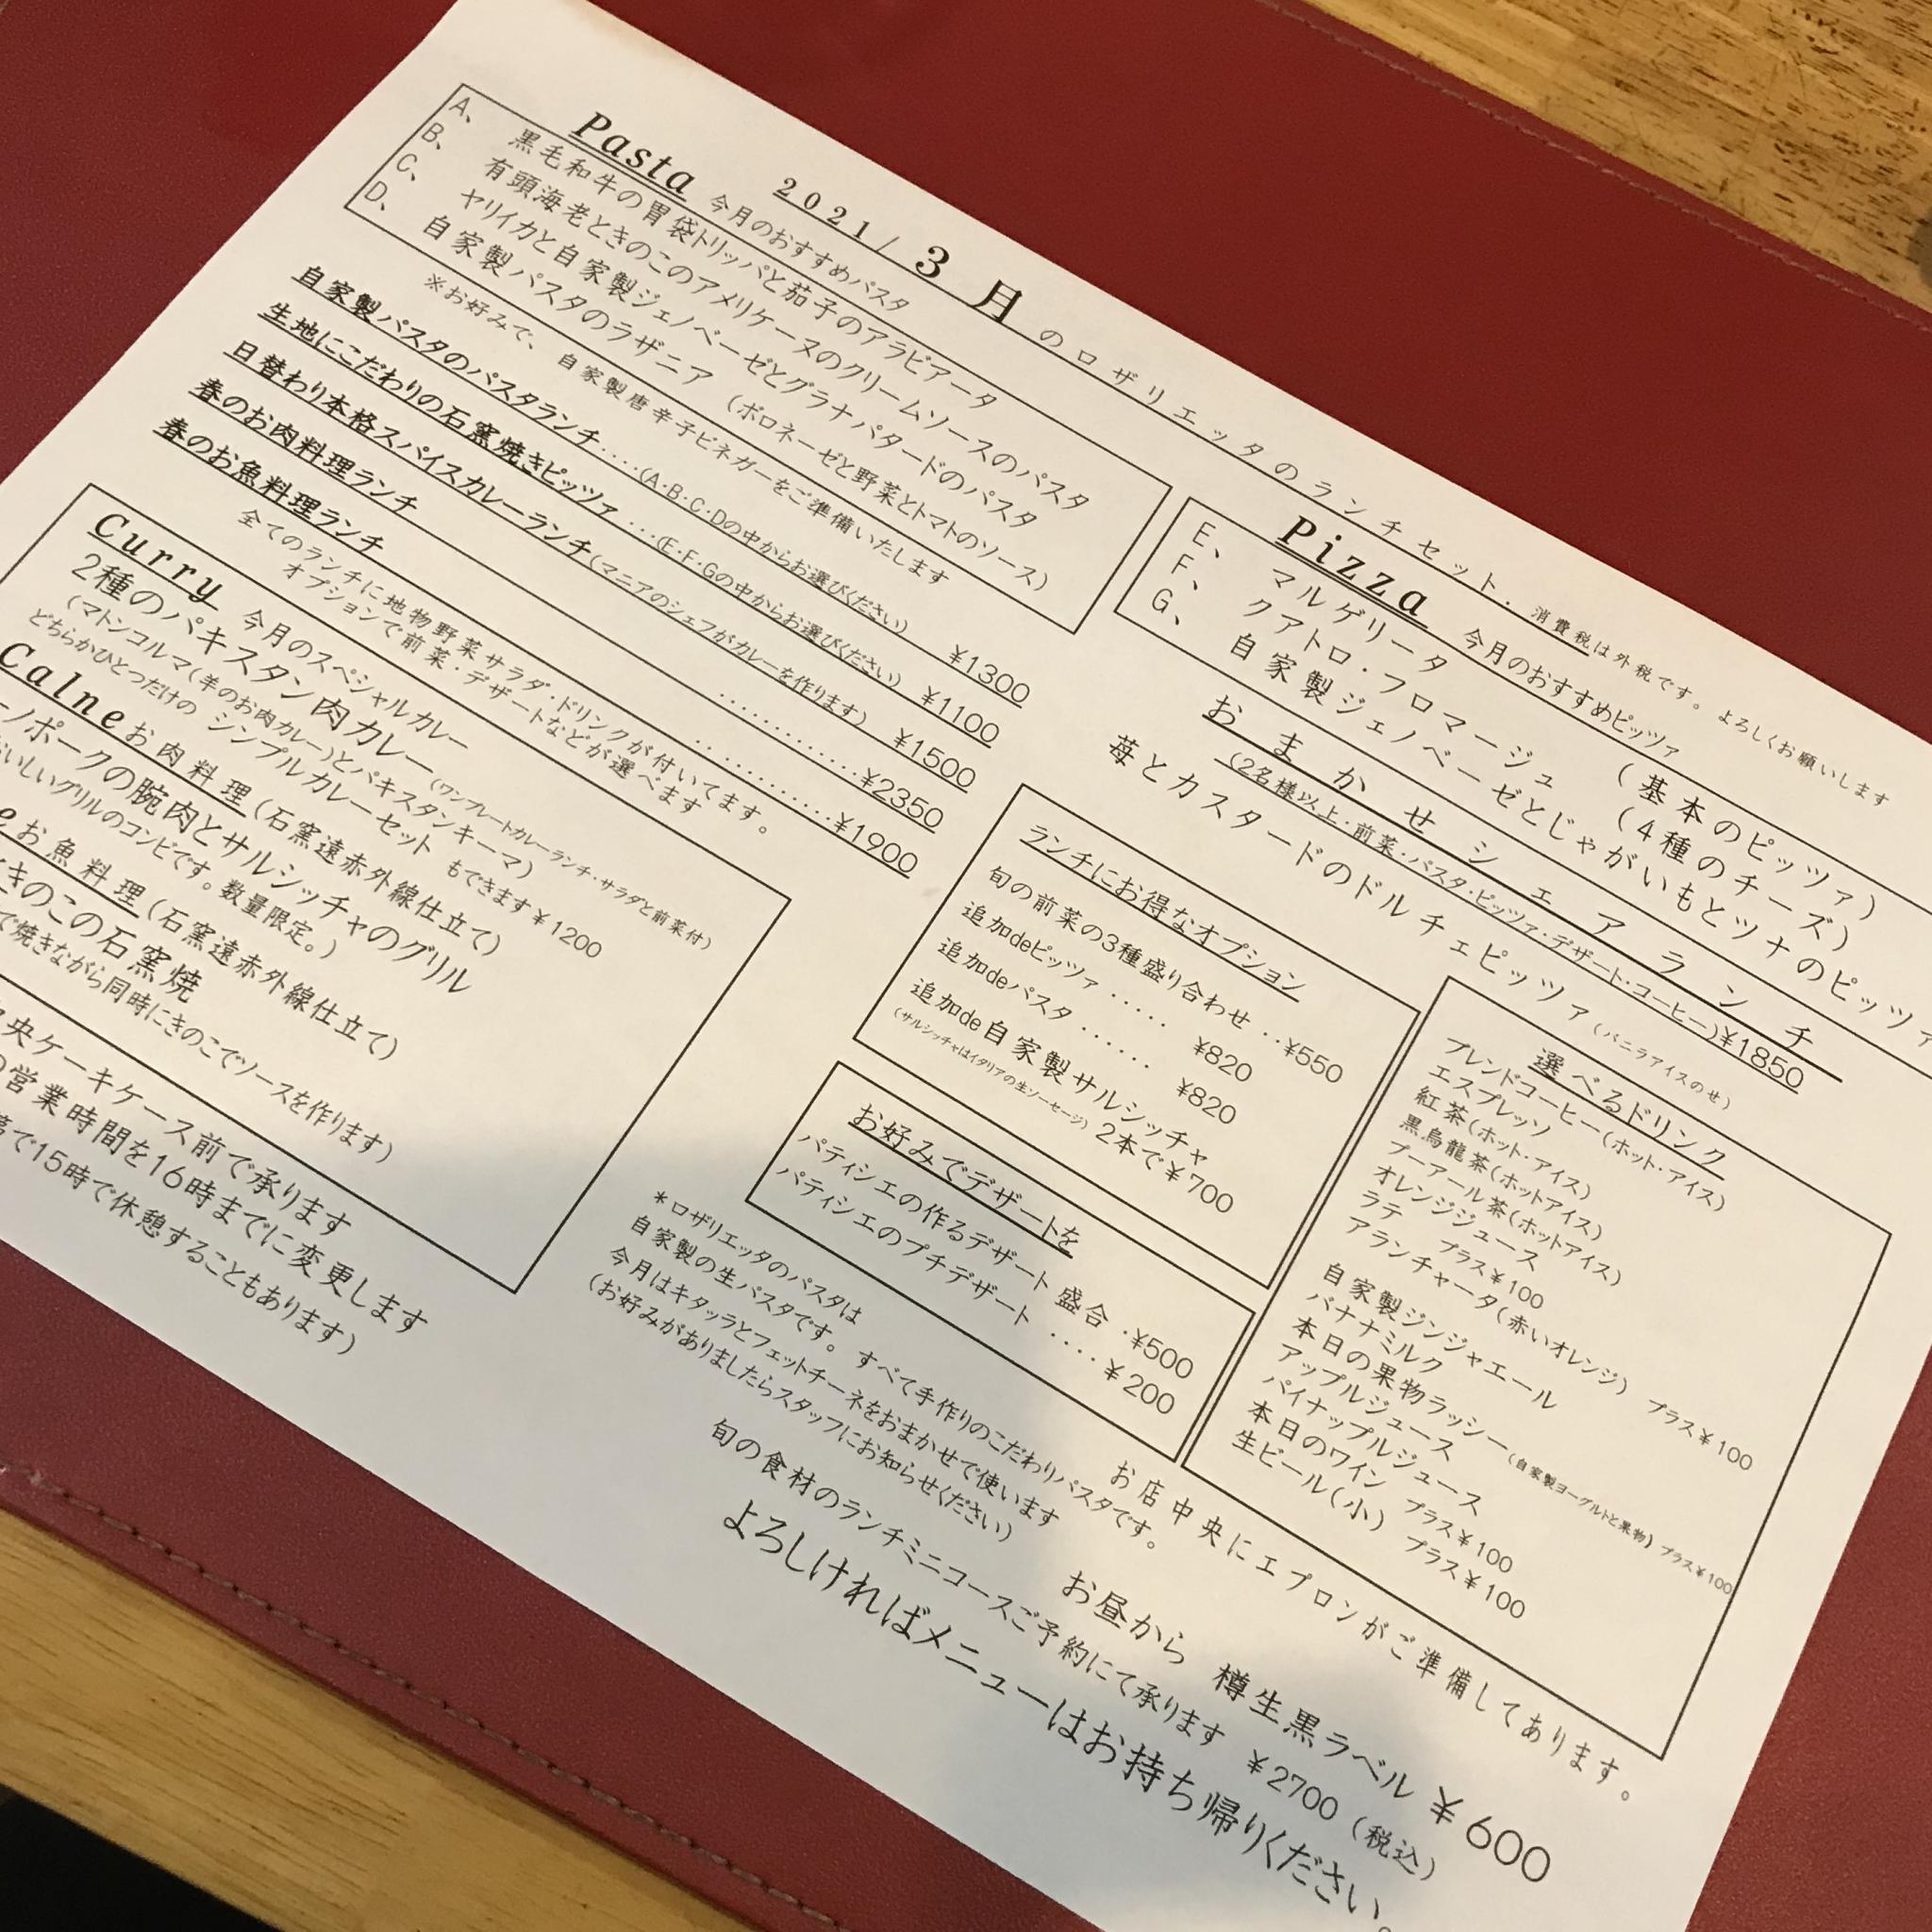 2021/3月のロザリエッタのランチセット. 消費税は外税です。よろしくお願いします
Pasta 今月のおすすめパスタ
A、 黒毛和牛の胃袋トリッパと茄子のアラビアータ
B、 有頭海老ときのこのアメリケーヌのクリームソースのパスタ
C、 ヤリイカと自家製ジェノベーゼとグラナパダードのパスタ
D、 自家製パスタのラザニア (ボロネーゼと野菜とトマトのソース)
※お好みで、自家製唐辛子ビネガーをご準備いたします
Pizza 今月のおすすめピッツァ
E、 マルゲリータ (基本のピッツァ)
F、 クアトロ・フロマージュ (4種のチーズ)
G、 自家製ジェノベーゼとじゃがいもとツナのピッツァ
自家製パスタのパスタランチ....(A・B・C・Dの中からお選びください) ¥1300
生地にこだわりの石窯焼きピッツァ ...(E・F・Gの中からお選びください) ¥1100
日替わり本格スパイスカレーランチ(マニアのシェフがカレーを作ります) ¥1500
春のお肉料理ランチ ............¥2350
春のお魚料理ランチ ............¥1900
全てのランチに地物野菜サラダ・ドリンクが付いてます。
オプションで前菜・デザートなどが選べます
おまかせシェアランチ
(2名様以上・前菜・パスタ・ピッツァ・デザート・コーヒー)¥1850
苺とカスタードのドルチェピッツァ(バニラアイスのせ)
Curry 今月のスペシャルカレー
2種のパキスタン肉カレー(ワンプレートカレーランチ・サラダと前菜付)
(マトンコルマ(羊のお肉カレー)とパキスタンキーマ)
どちらかひとつだけの シンプルカレーセット もできます¥1200
Calne お肉料理(石窯遠赤外線仕立て)
ノポークの腕肉とサルシッチャのグリル
おいしいグリルのコンビです。数量限定。)
e お魚料理(石窯遠赤外線仕立て)
ときのこの石窯焼
で焼きながら同時にきのこでソースを作ります)
央ケーキケース前で承ります
の営業時間を16時までに変更します
で15時で休憩することもあります)
ランチにお得なオプション
旬の前菜の3種盛り合わせ ..¥550
追加deピッツァ ..... ¥820
追加deパスタ ...... ¥820
追加de自家製サルシッチャ
(サルシッチャはイタリアの生ソーセージ) 2本で¥700
お好みでデザートを
パティシエの作るデザート盛合 .¥500
パティシエのプチデザート ....¥200
選べるドリンク
ブレンドコーヒー(ホット・アイス)
エスプレッソ
紅茶(ホット・アイス)
黒烏龍茶(ホットアイス)
プーアール茶(ホットアイス)
オレンジジュース
ラテ プラス¥100
アランチャータ(赤いオレンジ) プラス¥100
自家製ジンジャエール
バナナミルク
本日の果物ラッシー(自家製ヨーグルトと果物) プラス¥100
アップルジュース
パイナップルジュース
本日のワイン プラス¥100
生ビール(小) プラス¥100
*ロザリエッタのパスタは
自家製の生パスタです。すべて手作りのこだわりパスタです。
今月はキタッラとフェットチーネをおまかせで使います
(お好みがありましたらスタッフにお知らせください)
お店中央にエプロンがご準備してあります。
お昼から 樽生黒ラベル ¥600
旬の食材のランチミニコースご予約にて承ります ¥2700(税込)
よろしければメニューはお持ち帰りください。